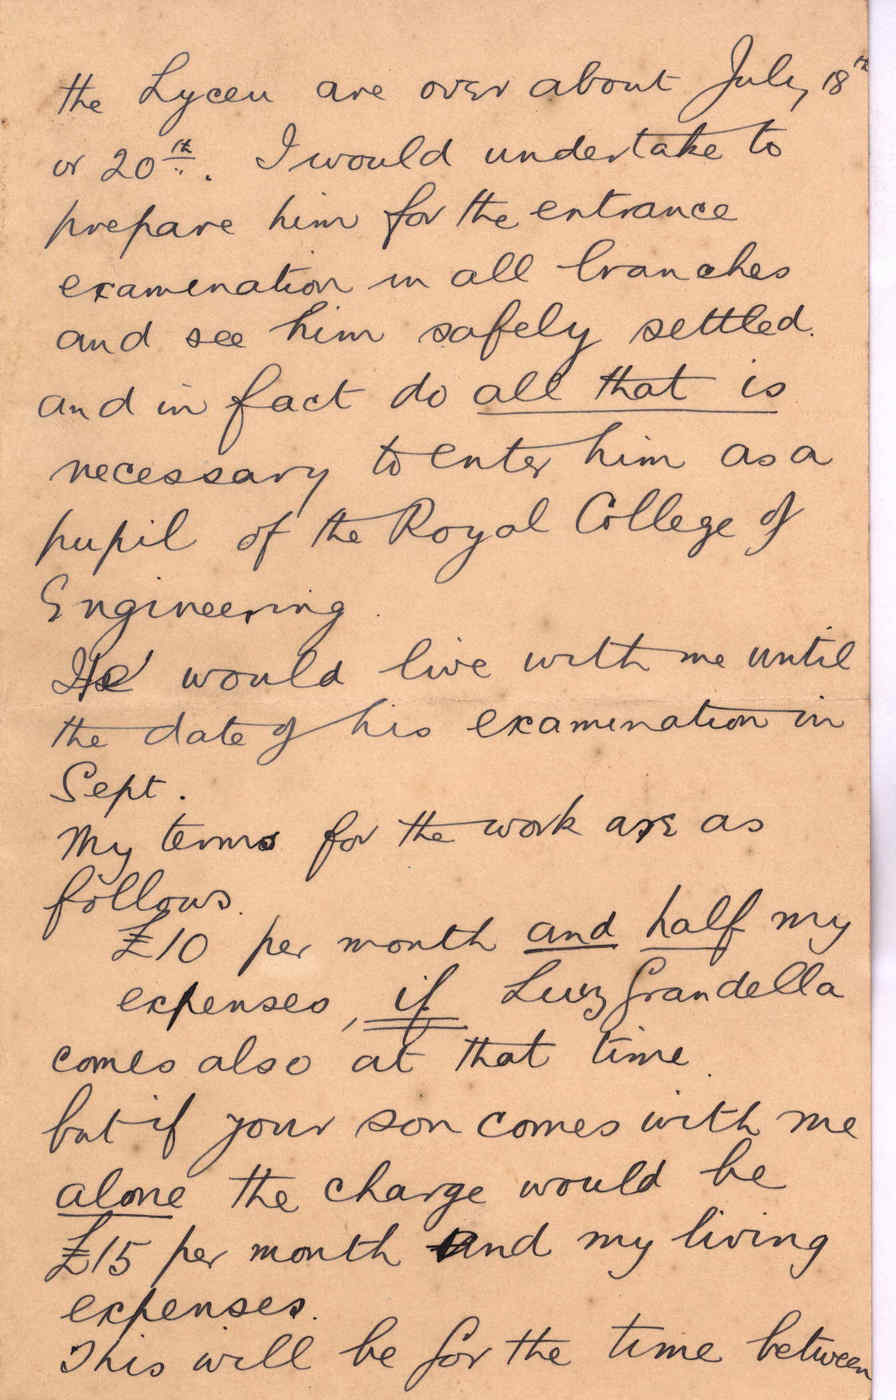 the Lyceu are over about July 18th
or 20th. I would undertake to
prepare him for the entrance
examination in all branches
and see him safely settled.
and in fact do all that is
necessary to enter him as a
pupil of the Royal College of
Engineering.
He would live with me until
the date of his examination in
Sept.
My terms for the work are as
follows.
£10 per month and half my
expenses, if Luiz Grandella
comes also at that time.
but if your son comes with me
alone the charge would be
£15 per month and my living
expenses.
This will be for the time between